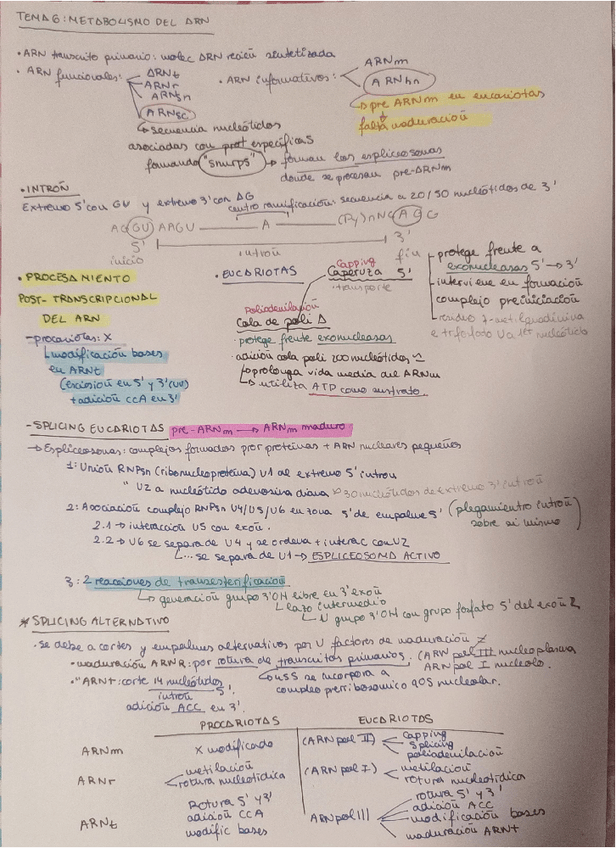 TEMA 6: METABOLISMO DEL ARN
• ARN transcrito primario: molec ARN recién sintetizada
• ARN funcionales: ARNt
ARNr
ARNsn
ARNsc
↳ secuencia nucleótidos
asociadas con prot específicas
formando "snurps" → forman los espliceosomas
donde se procesan pre-ARNm
• ARN informativos: ARNm
ARNhn
↳ pre ARNm en eucariotas
falta maduración
• INTRÓN
Extremo 5' con GU y extremo 3' con AG
centro ramificación: secuencia a 20/50 nucleótidos de 3'
AGGUAAGU — A — (Py)nNCAGG
5' 3'
inicio intrón fin
• PROCESAMIENTO
POST-TRANSCRIPCIONAL
DEL ARN
- procariotas: X
↳ modificación bases
en ARNt
(escisión en 5' y 3'
+ adición CCA en 3'
• EUCARIOTAS
Capping
Caperuza 5'
· transporte
- protege frente a
exonucleasas 5' → 3'
- interviene en formación
complejo preiniciación
- residuo 7-metilguanidina
e trifosfato Va 1er nucleótido
Poliadenilación
Cola de poli A
· protege frente exonucleasas
· adición cola poli 200 nucleótidos
↳ prolonga vida media del ARNm
↳ utiliza ATP como sustrato
- SPLICING EUCARIOTAS pre-ARNm → ARNm maduro
→ Espliceosomas: complejos formados por proteínas + ARN nucleares pequeños
1: Unión RNPsn (ribonucleoproteína) U1 al extremo 5' intrón
" U2 a nucleótido adenosina diana × 30 nucleótidos de extremo 3' intrón
2: Asociación complejo RNPsn U4/U5/U6 en zona 5' de empalme 5' (plegamiento intrón
sobre sí mismo)
2.1 → interacción U5 con exón.
2.2 → U6 se separa de U4 y se ordena + interac con U2
↳ ... se separa de U1 → ESPLICEOSOMA ACTIVO
3: 2 reacciones de transesterificación
↳ generación grupo 3'OH libre en 3' exón
↳ lazo intermedio
↳ U grupo 3'OH con grupo fosfato 5' del exón 2
* SPLICING ALTERNATIVO
• se debe a cortes y empalmes alternativos por U factores de maduración ≠
• maduración ARNR: por rotura de transcritos primarios. (ARN pol III nucleoplasma
ARN pol I nucleolo.
↳ 5S se incorpora a
complejo prerribosómico 90S nucleolar.
• " ARNt: corte 14 nucleótidos 5',
intrón
adición ACC en 3'.
PROCARIOTAS EUCARIOTAS
ARNm X modificado (ARN pol II) capping
splicing
poliadenilación
ARNr metilación
rotura nucleotídica
(ARN pol I) metilación
rotura nucleotídica
ARNt Rotura 5' y 3'
adición CCA
modific bases
ARN pol III rotura 5' y 3'
adición ACC
modificación bases
maduración ARNt